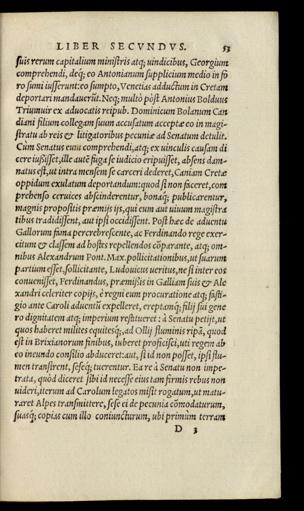 LIBER SECVNDVS. 53
suis rerum capitalium ministris atq; uindicibus, Georgium
comprehendi, deq; eo Antonianum supplicium medio in fo
ro sumi iusserunt: eo sumpto, Venetias adductum in Cretam
deportari mandauerūt. Neq; multò pòst Antonius Bolduus
Triumuir ex aduocatis reipub. Dominicum Bolanum Can
diani filium collegam suum accusatum accepta à eo in magi-
stratu ab reis & litigatoribus pecunia ad Senatum detulit.
Cùm Senatus eum comprehendi, atq; ex uinculis causam di
cere iußisset, ille autē fuga se iudicio eripuisset, absens dam-
natus est, ut intra mensem se carceri dederet, Caniam Cretæ
oppidum exulatum deportandum: quod si non faceret, com
prehenso ceruices abscinderentur, bonaq; publicarentur,
magnis propositis præmijs ijs, qui eum aut uiuum magistra
tibus tradidissent, aut ipsi occidissent. Post hæc de aduentu
Gallorum fama percrebrescente, ac Ferdinando rege exer-
citum & classem ad hostes repellendos cōparante, atq; om-
nibus Alexandrum Pont. Max. pollicitationibus, ut suarum
partium esset, sollicitante, Ludouicus ueritus, ne si inter eos
conuenisset, Ferdinandus, præmissis in Galliam suis & Ale
xandri celeriter copijs, è regni eum procuratione atq; fasti-
gio ante Caroli aduentū expelleret, creptamq; filij sui gene
ro dignitatem atq; imperium restitueret: à Senatu petijt, ut
quos haberet milites equitesq́;, ad Ollij fluminis ripā, quod
est in Brixianorum finibus, iuberet proficisci, uti regem ab
eo ineundo consilio abduceret: aut, si id non posset, ipsi flu-
men transirent, seseq́; tuerentur. Ea re à Senatu non impe-
trata, quòd diceret sibi id necesse eius tam firmis rebus non
uideri, iterum ad Carolum legatos misit rogatum, ut matu-
raret Alpes transmittere, sese ei de pecunia cōmodaturum,
suasq́; copias cum illo coniuncturum, ubi primùm terram
D 3